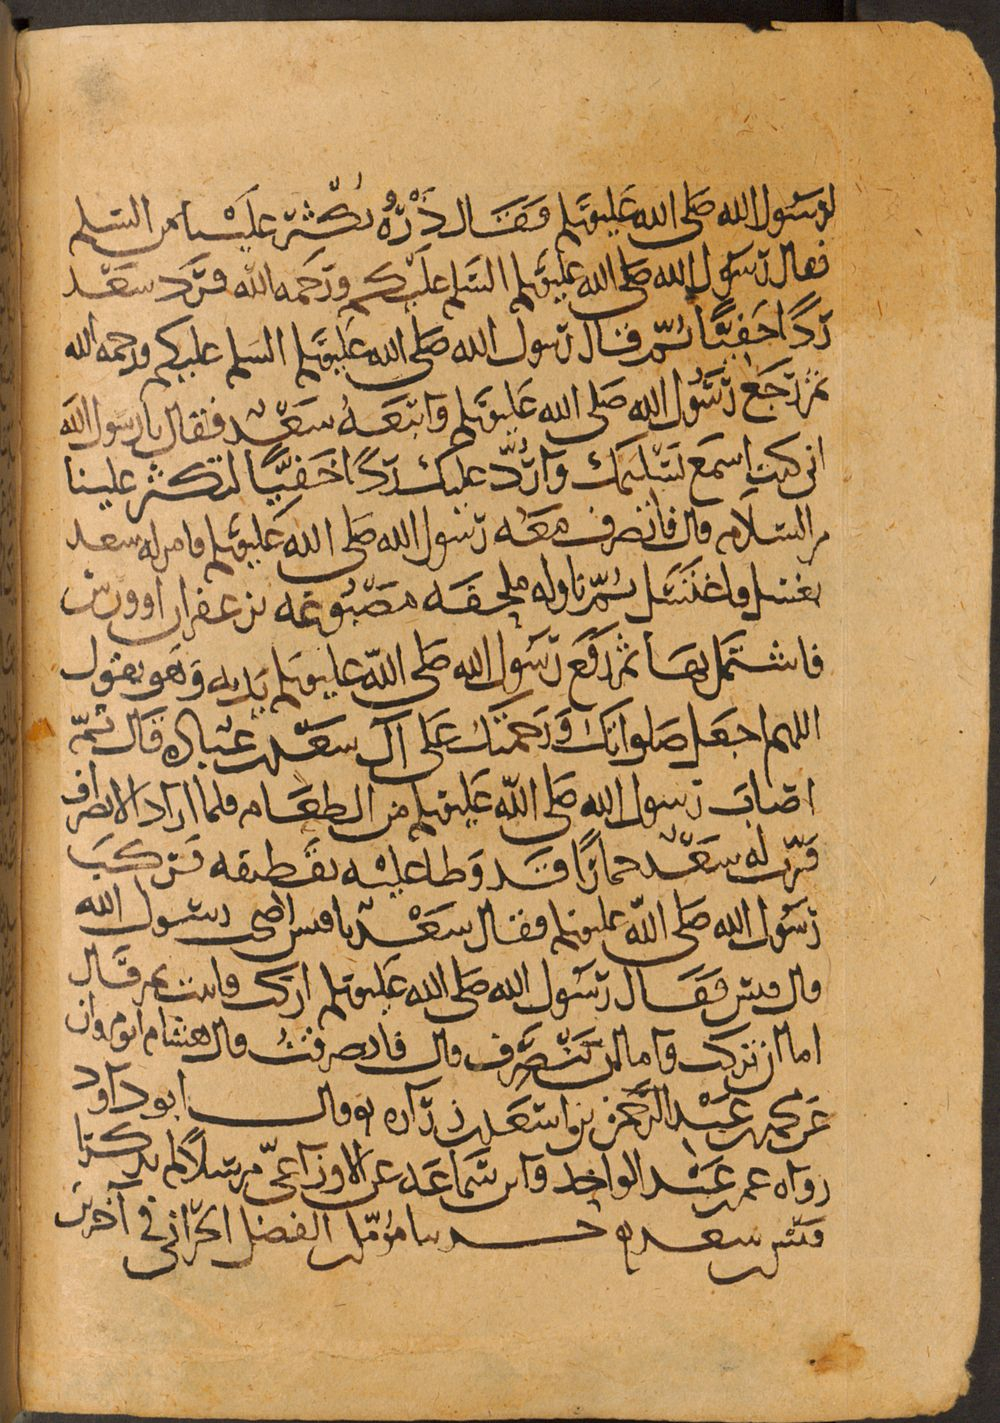 لرسول الله صلى الله عليه وسلم فقال ذره يكثر علينا من السلم
فقال رسول الله صلى الله عليه وسلم السلم عليكم ورحمه الله فرد سعد
ردا خفيا ثم قال رسول الله صلى الله عليه وسلم السلم عليكم ورحمه الله
ثم رجع رسول الله صلى الله عليه وسلم واتبعه سعد فقال يا رسول الله
انى كنت اسمع تسليمك وارد عليك ردا خفيا لتكثر علينا
من السلام قال فانصرف معه رسول الله صلى الله عليه وسلم فامر له سعد
بغسل فاغتسل ثم ناوله ملحفه مصبوغه بزعفران او ورس
فاشتمل بها ثم رفع رسول الله صلى الله عليه وسلم يديه وهو يقول
اللهم اجعل صلواتك ورحمتك على ال سعد بن عباده قال ثم
اصاب رسول الله صلى الله عليه وسلم من الطعام فلما اراد الانصراف
قرب له سعد حمارا قد وطا عليه بقطيفه فركب
رسول الله صلى الله عليه وسلم فقال سعد يا قيس اصحب رسول الله
قال قيس فقال رسول الله صلى الله عليه وسلم اركب فابيت ثم قال
اما ان تركب واما ان تنصرف قال فانصرفت قال هشام ابو مروان
عن محمد بن عبد الرحمن بن اسعد بن زراره وقال ابو داود
رواه عمر بن عبد الواحد وابن سماعه عن الاوزاعي مرسلا لم يذكرا
قيس بن سعد ه حدثنا مؤمل بن الفضل الحراني في آخرين